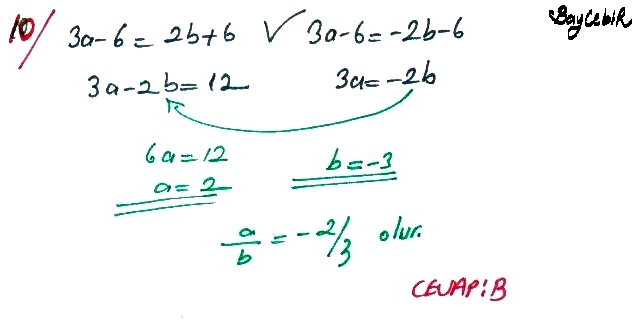 BayCebiR
10/ 3a-6 = 2b+6 V 3a-6 = -2b-6
3a-2b=12 3a=-2b
6a=12 b=-3
a=2
a/b = -2/3 olur.
CEVAP:B